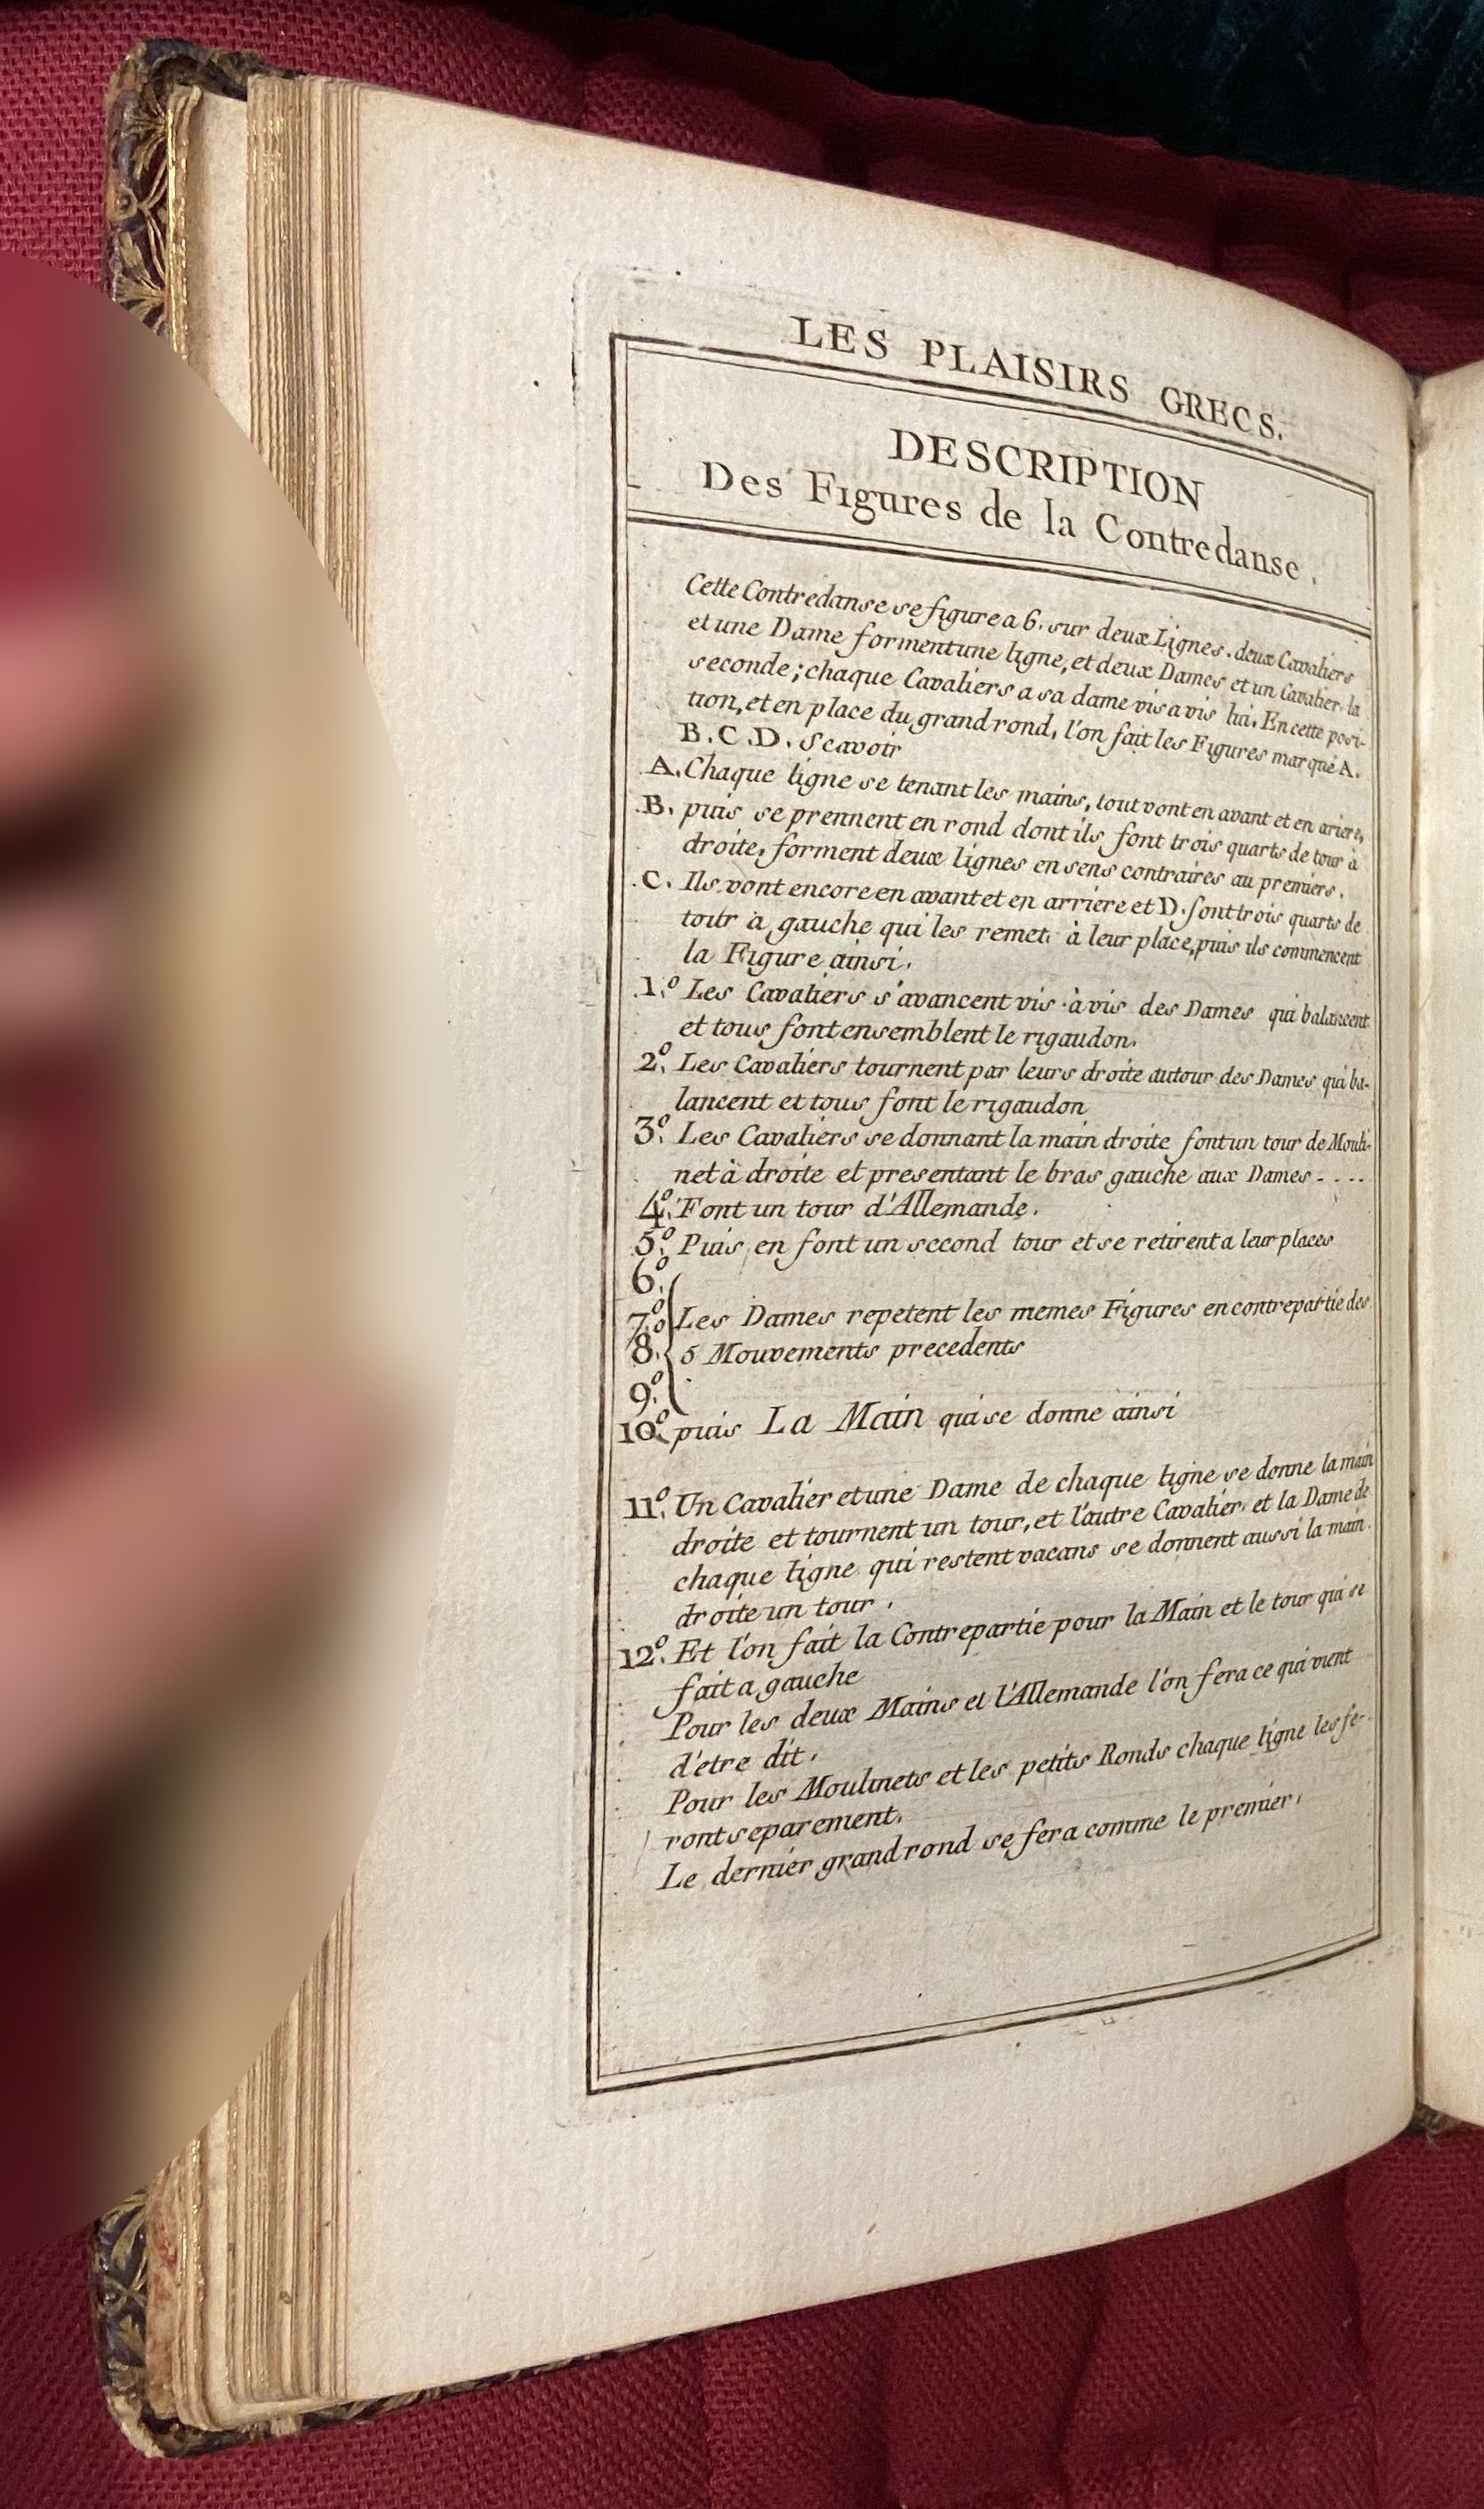 LES PLAISIRS GRECS.
DESCRIPTION
Des Figures de la Contredanse.
Cette Contredanse se figure a 6. sur deux Lignes. deux Cavaliers
et une Dame forment une ligne, et deux Dames et un Cavalier la
seconde; chaque Cavaliers a sa dame vis a vis lui. En cette posi-
tion, et en place du grand rond, l'on fait les Figures marqué A.
B. C. D. Scavoir
A. Chaque ligne se tenant les mains, tout vont en avant et en ariere,
B. puis se prennent en rond dont ils font trois quarts de tour à
droite, forment deux lignes en sens contraires au premiers.
C. Ils vont encore en avant et en arriere et D. font trois quarts de
tour à gauche qui les remet à leur place, puis ils commencent
la Figure ainsi.
1.º Les Cavaliers s'avancent vis à vis des Dames qui balancent
et tous font ensemblent le rigaudon.
2.º Les Cavaliers tournent par leurs droite autour des Dames qui ba-
lancent et tous font le rigaudon
3.º Les Cavaliers se donnant la main droite font un tour de Mouli-
net à droite et presentant le bras gauche aux Dames - . . .
4.º Font un tour d'Allemande.
5.º Puis en font un second tour et se retirent a leur places
6.º
7.º Les Dames repetent les memes Figures en contrepartie des
8.º 5 Mouvements precedents
9.º
10.º puis La Main qui se donne ainsi
11.º Un Cavalier et une Dame de chaque ligne se donne la main
droite et tournent un tour, et l'autre Cavalier et la Dame de
chaque ligne qui restent vacans se donnent aussi la main
droite un tour.
12.º Et l'on fait la Contrepartie pour la Main et le tour qui se
fait a gauche
Pour les deux Mains et l'Allemande l'on fera ce qui vient
d'etre dit.
Pour les Moulinets et les petits Ronds chaque ligne les fe-
ront separement.
Le dernier grand rond se fera comme le premier.